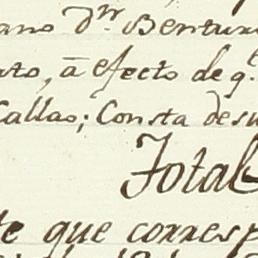 ano dn. Bentur
to, ā efecto de q.e
Callao; Consta de su
Total
te que corresp